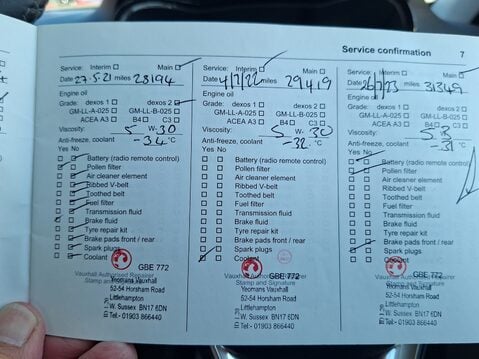 Service confirmation 7
Service: Interim Main
Date 27-5-21 miles 28194
Engine oil
Grade: dexos 1 dexos 2
GM-LL-A-025 GM-LL-B-025
ACEA A3 B4 C3
Viscosity: 5 W- 30
Anti-freeze, coolant -34 °C
Yes No
Battery (radio remote control)
Pollen filter
Air cleaner element
Ribbed V-belt
Toothed belt
Fuel filter
Transmission fluid
Brake fluid
Tyre repair kit
Brake pads front / rear
Spark plugs
Coolant
GBE 772
Vauxhall Authorised Repairer
Stamp and Signature
Yeomans Vauxhall
52-54 Horsham Road
Littlehampton
W. Sussex BN17 6DN
Tel:- 01903 866440
Service: Interim Main
Date 4/7/22 miles 29419
Engine oil
Grade: dexos 1 dexos 2
GM-LL-A-025 GM-LL-B-025
ACEA A3 B4 C3
Viscosity: 5 W- 30
Anti-freeze, coolant -32 °C
Yes No
Battery (radio remote control)
Pollen filter
Air cleaner element
Ribbed V-belt
Toothed belt
Fuel filter
Transmission fluid
Brake fluid
Tyre repair kit
Brake pads front / rear
Spark plugs
Coolant
GBE 772
Vauxhall Authorised Repairer
Stamp and Signature
Yeomans Vauxhall
52-54 Horsham Road
Littlehampton
W. Sussex BN17 6DN
Tel:- 01903 866440
Service: Interim Main
Date 26/7/23 miles 31349
Engine oil
Grade: dexos 1 dexos 2
GM-LL-A-025 GM-LL-B-025
ACEA A3 B4 C3
Viscosity: 5
Anti-freeze, coolant -31 °C
Yes No
Battery (radio remote control)
Pollen filter
Air cleaner element
Ribbed V-belt
Toothed belt
Fuel filter
Transmission fluid
Brake fluid
Tyre repair kit
Brake pads front / rear
Spark plugs
Coolant
GBE 772
Vauxhall Authorised Repairer
Stamp and Signature
Yeomans Vauxhall
52-54 Horsham Road
Littlehampton
W. Sussex BN17 6DN
Tel:- 01903 866440